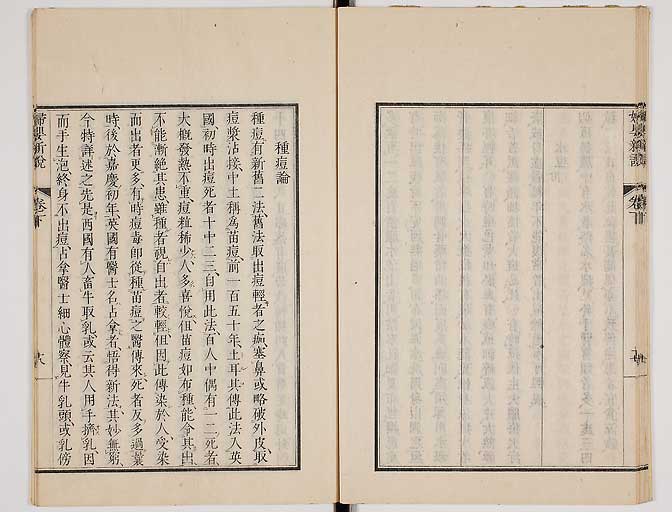 婦嬰新說
卷下
種痘論
種痘有新舊二法、舊法取出痘輕者之痂、塞鼻、或略破外皮、取
痘漿沾接、中土稱為苗痘、前一百五十年、土耳其傳此法入英
國、初時出痘死者十中二三、自用此法、百人中偶有一二死者、
大概發熱不重、痘粒稀少、人多喜悅、但苗痘如布種、能令其出、
不能漸絕其患、雖種者視自出者較輕、但因此傳染於人、受染
而出者更多、有時痘毒即從種苗痘之醫傳來、死者反多過曩
時、後於嘉慶初年、英國有醫士名占拿者、悟得新法、其妙無窮、
今特詳述之、先是西國有人畜牛取乳、或云其人用手擠乳、因
而手生泡、終身不出痘、占拿醫士細心體察、見牛乳頭、或乳傍
婦嬰新說
卷下